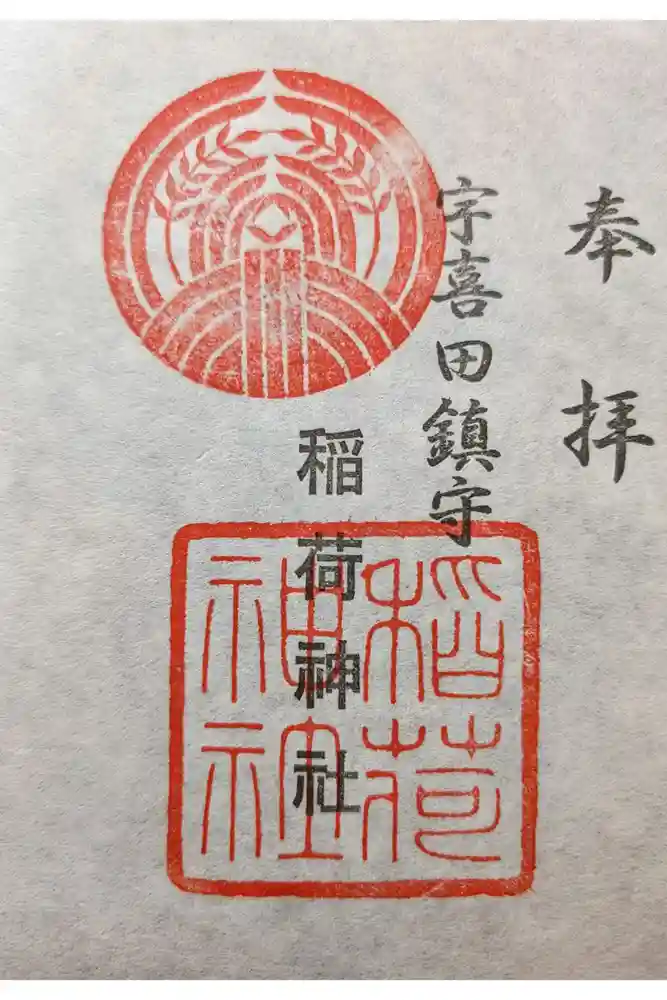 奉拝
宇喜田鎮守
稲荷神社
稲荷
神社